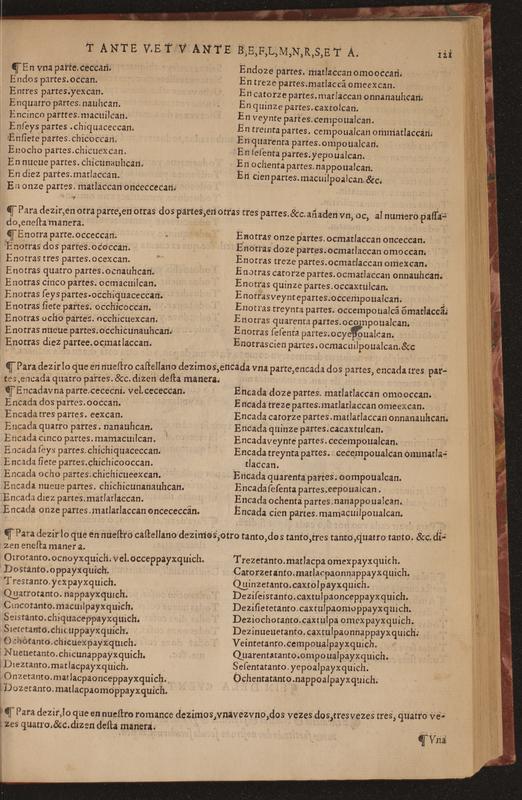 T ANTE V.ET V ANTE B,E,F,L,M,N,R,S,ET A.
iii
¶ En vna parte.ceccan.
Endos partes.occan.
Entres partes.yexcan.
Enquatro partes.nauhcan.
Encinco parttes.macuilcan.
Enſeys partes.chiquaceccan.
Enſiete partes.chicoccan.
Enocho partes.chicuexcan.
En nueue partes.chicunauhcan.
En diez partes.matlaccan.
En onze partes. matlaccan onceccecan.
Endoze partes. matlaccan omooccan.
En treze partes.matlaccã omeexcan.
En catorze partes.matlaccan onnanauhcan.
En quinze partes.caxtolcan.
En veynte partes.cempoualcan.
En treinta partes. cempoualcan ommatlaccan.
En quarenta partes.ompoualcan.
En ſeſenta partes.yepoualcan.
En ochenta partes.nappoualcan.
En cien partes.macuilpoalcan.&c.
¶ Para dezir,en otra parte,en otras dos partes,en otras tres partes.&c.añaden vn, oc, al numero paſſa-
do,eneſta manera.
¶ Enotra parte.occeccan.
Enotras dos partes.ococcan.
Enotras tres partes.ocexcan.
Enotras quatro partes.ocnauhcan.
Enotras cinco partes.ocmacuilcan.
Enotras ſeys partes-occhiquaceccan.
Enotras ſiete partes.occhicoccan.
Enotras ocho partes.occhicuexcan.
Enotras nueue partes.occhicunauhcan.
Enotras diez partee.ocmatlaccan.
Enotras onze partes.ocmatlaccan onceccan.
Enotras doze partes.ocmatlaccan omoccan.
Enotras treze partes.ocmatlaccan omexcan.
Enotras catorze partes.ocmatlaccan onnauhcan.
Enotras quinze partes.occaxtulcan.
Enotras veynte partes.occempoualcan.
Enotras treynta partes. occempoualcã õmatlaccã.
Enotras quarenta partes.ocompoualcan.
Enotras ſeſenta partes.ocyepoualcan.
Enotrascien partes.ocmacuilpoualcan.&c
¶ Para dezir lo que en nueſtro caſtellano dezimos,encada vna parte,encada dos partes, encada tres par-
tes,encada quatro partes.&c.dizen deſta manera.
¶ Encadavna parte.cececni. vel.cececcan.
Encada dos partes.ooccan.
Encada tres partes. eexcan.
Encada quatro partes. nanauhcan.
Encada cinco partes.mamacuilcan.
Encada ſeys partes.chichiquaceccan.
Encada ſiete partes.chichicooccan.
Encada ocho partes.chichicueexcan.
Encada nueue partes. chichicunanauhcan.
Encada diez partes.matlatlaccan.
Encada onze partes.matlatlaccan oncececcãn.
Encada doze partes. matlatlaccan omooccan.
Encada treze partes.matlatlaccan omeexcan.
Encada catorze partes.matlatlaccan onnanauhcan.
Encada quinze partes.cacaxtulcan.
Encadaveynte partes.cecempoualcan.
Encada treynta partes. cecempoualcan ommatla-
tlaccan.
Encada quarenta partes. oompoualcan.
Encadaſeſenta partes.eepoualcan.
Encada ochenta partes.nanappoualcan.
Encada cien partes.mamacuilpoualcan.
¶ Para dezir lo que en nueſtro caſtellano dezimos,otro tanto,dos tanto,tres tanto,quatro tanto. &c.di-
zen eneſta manera.
Otrotanto.ocnoyxquich. vel.occeppayxquich.
Dostanto.oppayxquich.
Trestanto.yexpayxquich.
Quatrotanto. nappayxquich.
Cincotanto.macuilpayxquich.
Seistanto.chiquaceppayxquich.
Sietetanto.chicuppayxquich.
Ochotanto.chicuexpayxquich.
Nueuetanto.chicunappayxquich.
Dieztanto.matlacpayxquich.
Onzetanto.matlacpaonceppayxquich.
Dozetanto.matlacpaomoppayxquich.
Trezetanto.matlacpa omexpayxquich.
Catorzetanto.matlacpaonnappayxquich.
Quinzetanto.caxtolpayxquich.
Deziſeistanto.caxtulpaonceppayxquich.
Deziſietetanto.caxtulpaomoppayxquich.
Deziochotanto.caxtulpa omexpayxquich.
Dezinueuetanto.caxtulpaonnappayxquich.
Veintetanto.cempoualpayxquich.
Quarentatanto.ompoualpayxquich.
Seſentatanto.yepoalpayxquich.
Ochentatanto.nappoalpayxquich.
¶ Para dezir,lo que en nueſtro romance dezimos,vnavezvno,dos vezes dos,tresvezes tres, quatro ve-
zes quatro.&c.dizen deſta manera.
¶ Vna